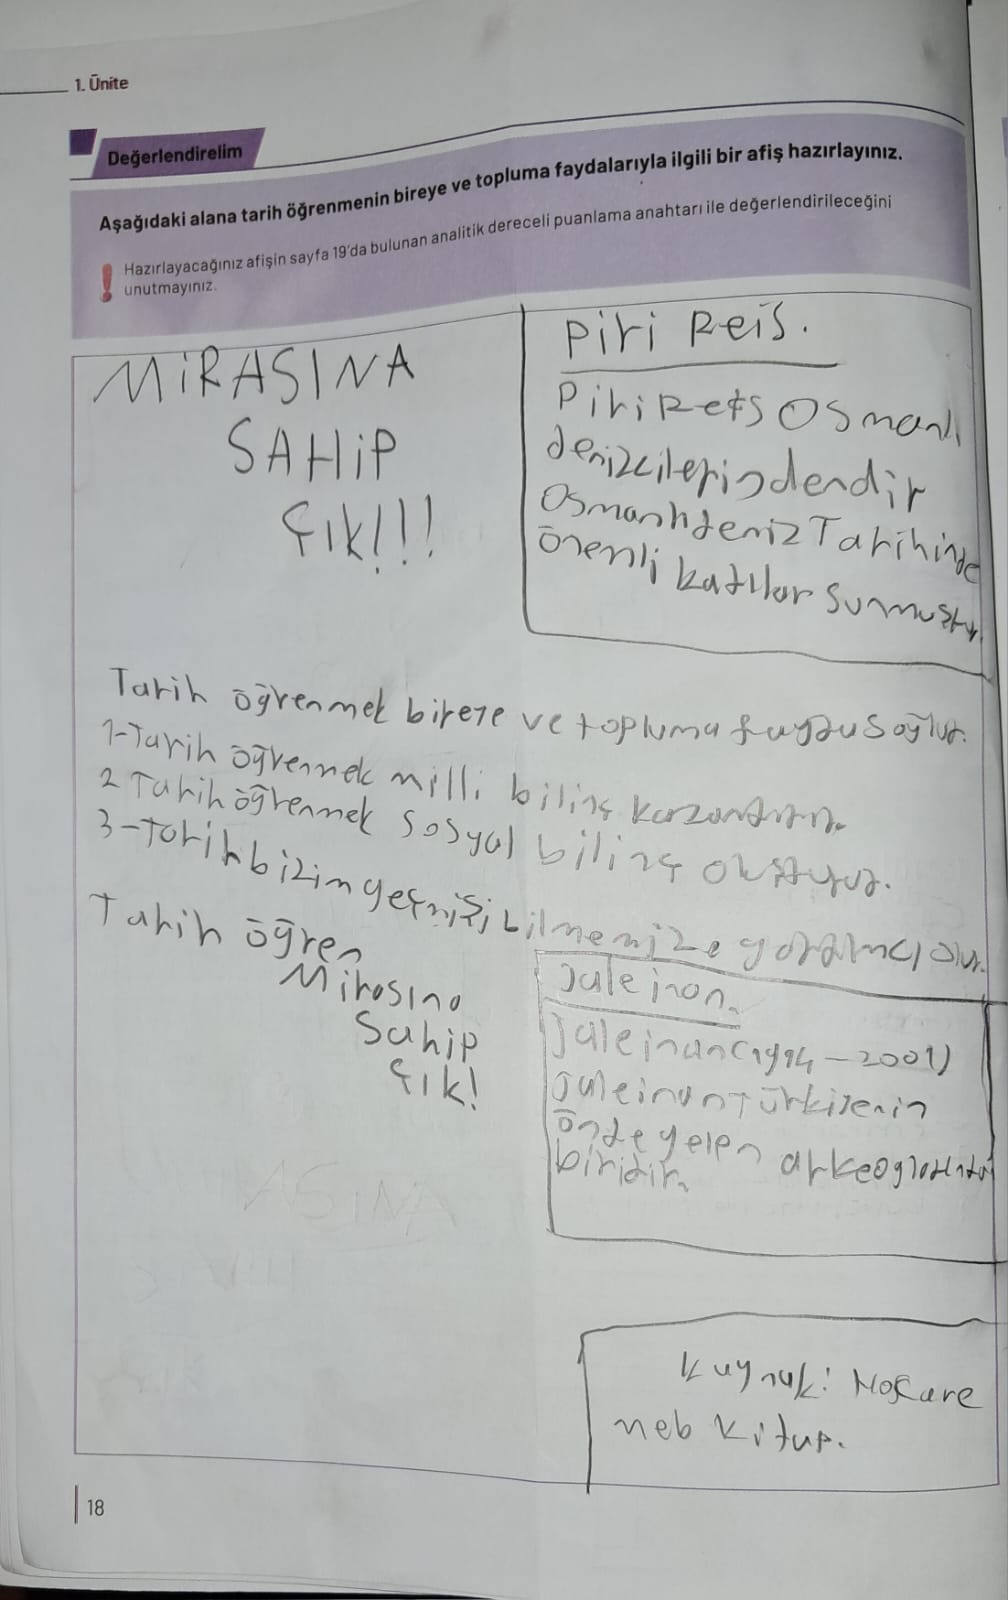 1. Ünite
Değerlendirelim
Aşağıdaki alana tarih öğrenmenin bireye ve topluma faydalarıyla ilgili bir afiş hazırlayınız.
! Hazırlayacağınız afişin sayfa 19'da bulunan analitik dereceli puanlama anahtarı ile değerlendirileceğini
unutmayınız.
MİRASINA
SAHİP
ÇIK!!!
Piri Reis.
Piri Reis Osmanlı
denizcilerindendir
Osmanlı deniz Tarihinde
önemli katılar sunmuştu
Tarih öğrenmek bireye ve topluma fayda sağlar.
1-Tarih öğrenmek milli bilinç kazandırır.
2 Tarih öğrenmek sosyal bilinç oluşturur.
3-Tarih bizim geçmişi bilmemize yardımcı olur.
Tarih öğren
Mirasına
Sahip
çık!
Jale inan.
Jale inan (1914-2001)
Jale inan Türkiyenin
önde gelen
biridir.
ASINA
Kaynak:
meb kitap.
18